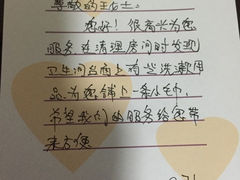 尊敬的王女士:
您好!很高兴为您
服务在清理房间时发现
卫生间台面上有些洗漱用
品,为您铺上一条小毛巾,
希望我们的服务给您带
来方便